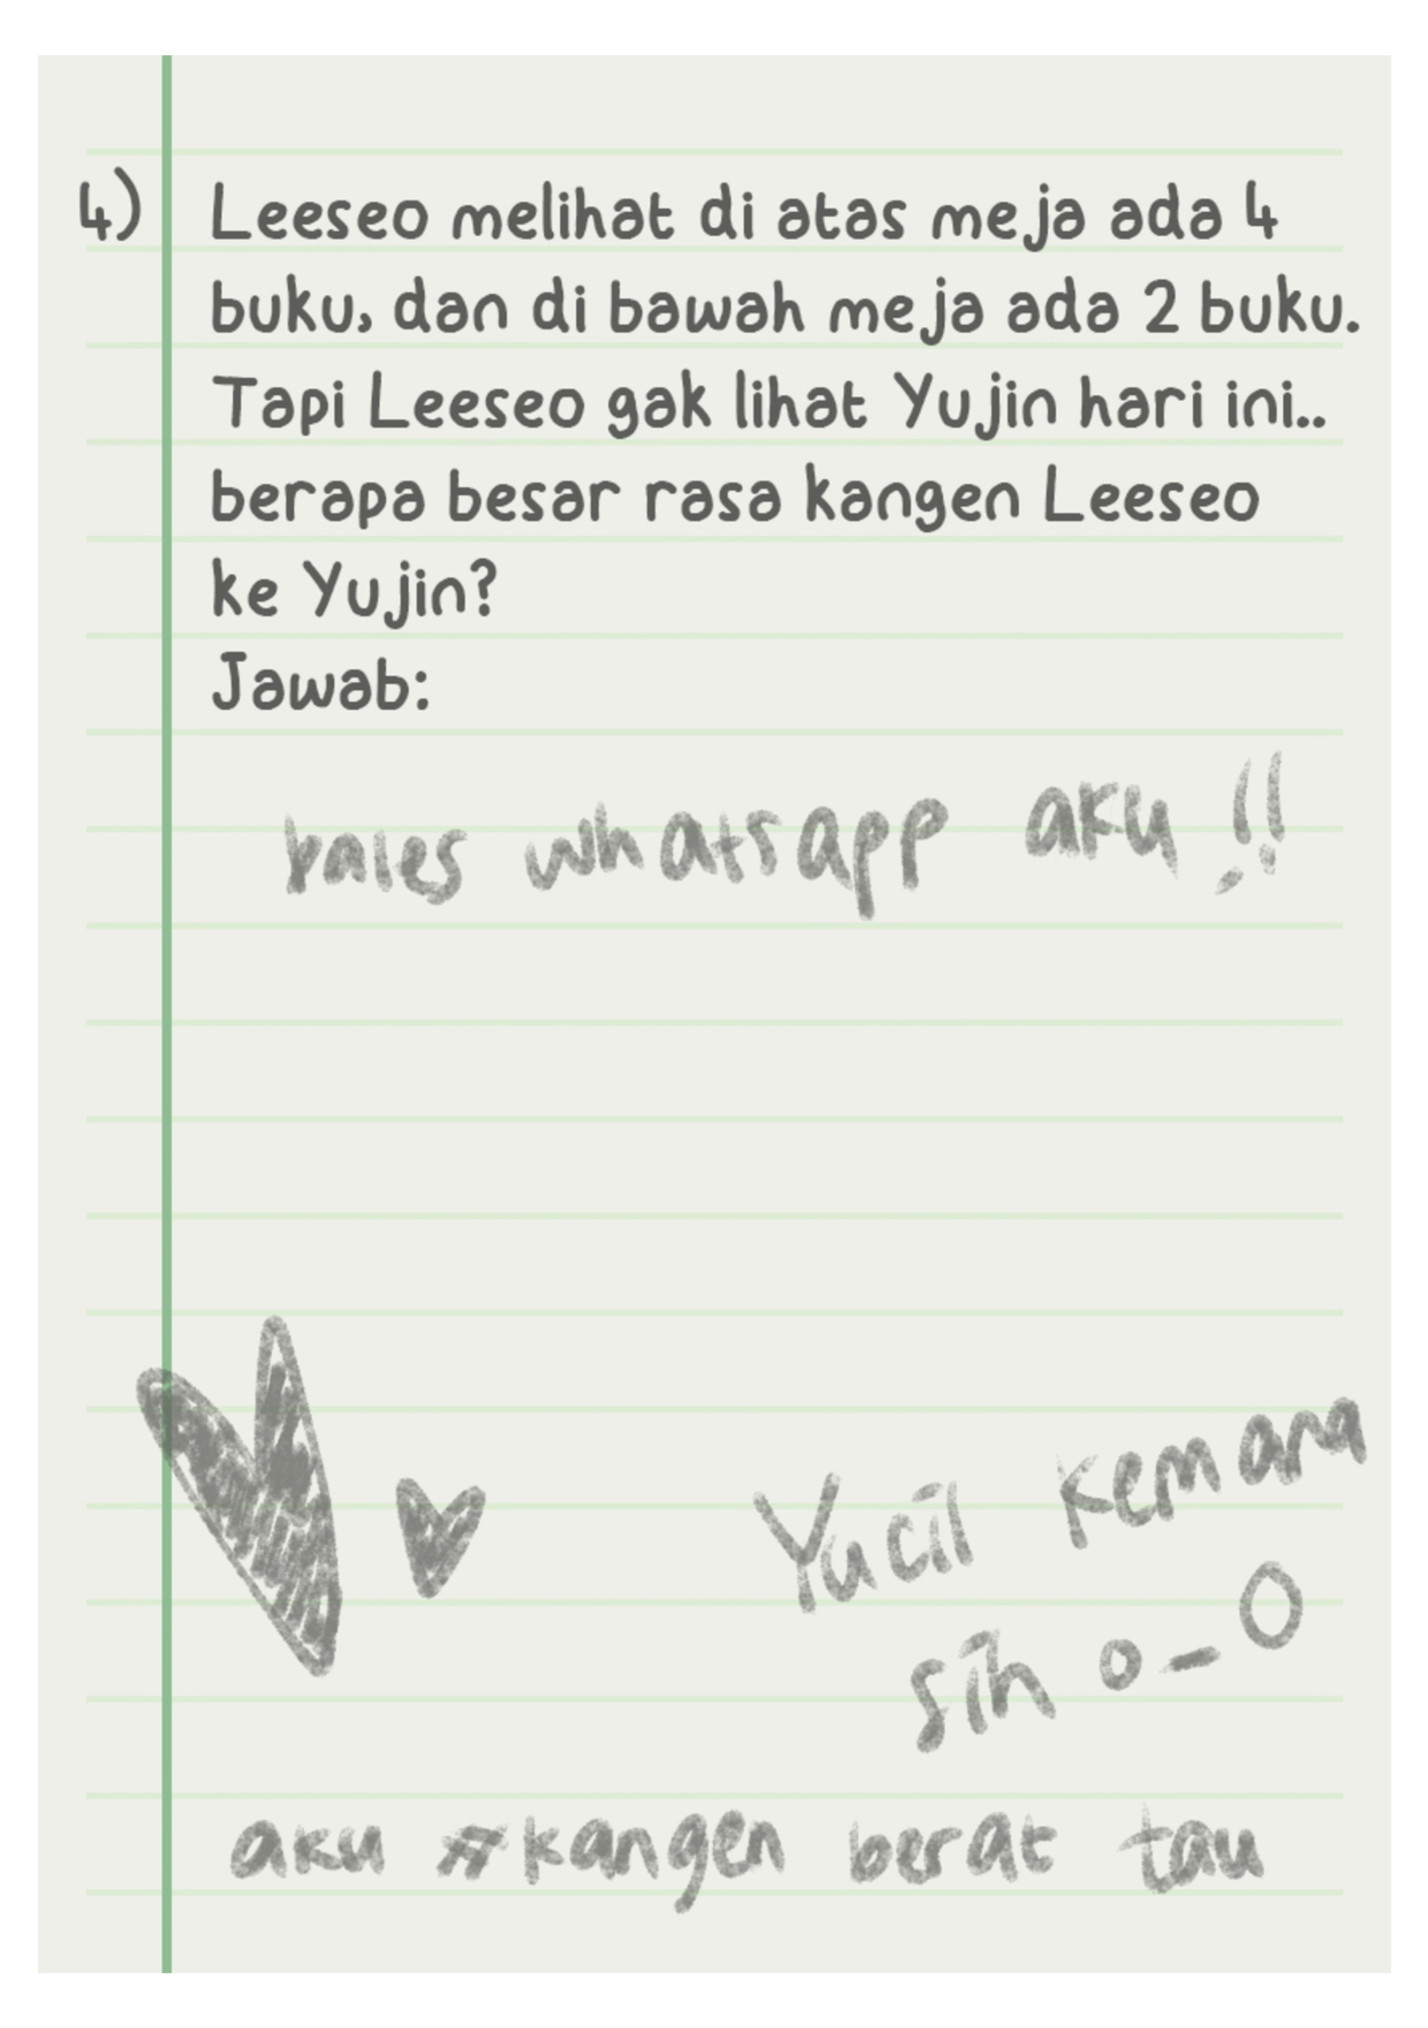 4) Leeseo melihat di atas meja ada 4
buku, dan di bawah meja ada 2 buku.
Tapi Leeseo gak lihat Yujin hari ini..
berapa besar rasa kangen Leeseo
ke Yujin?
Jawab:
bales whatsapp aku !!
Yucil kemana
sih o_O
aku #kangen berat tau